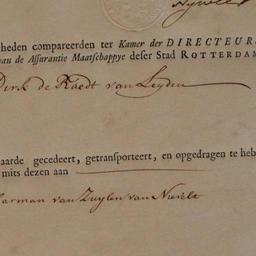 heden compareerden ter Kamer der DIRECTEUR
van de Assurantie Maatschappye deser Stad ROTTERDAM
Dirk de Raedt van Leyden
aarde gecedeert, getransporteert, en opgedragen te heb
mits dezen aan
Harman van Zuylen van Nievelt